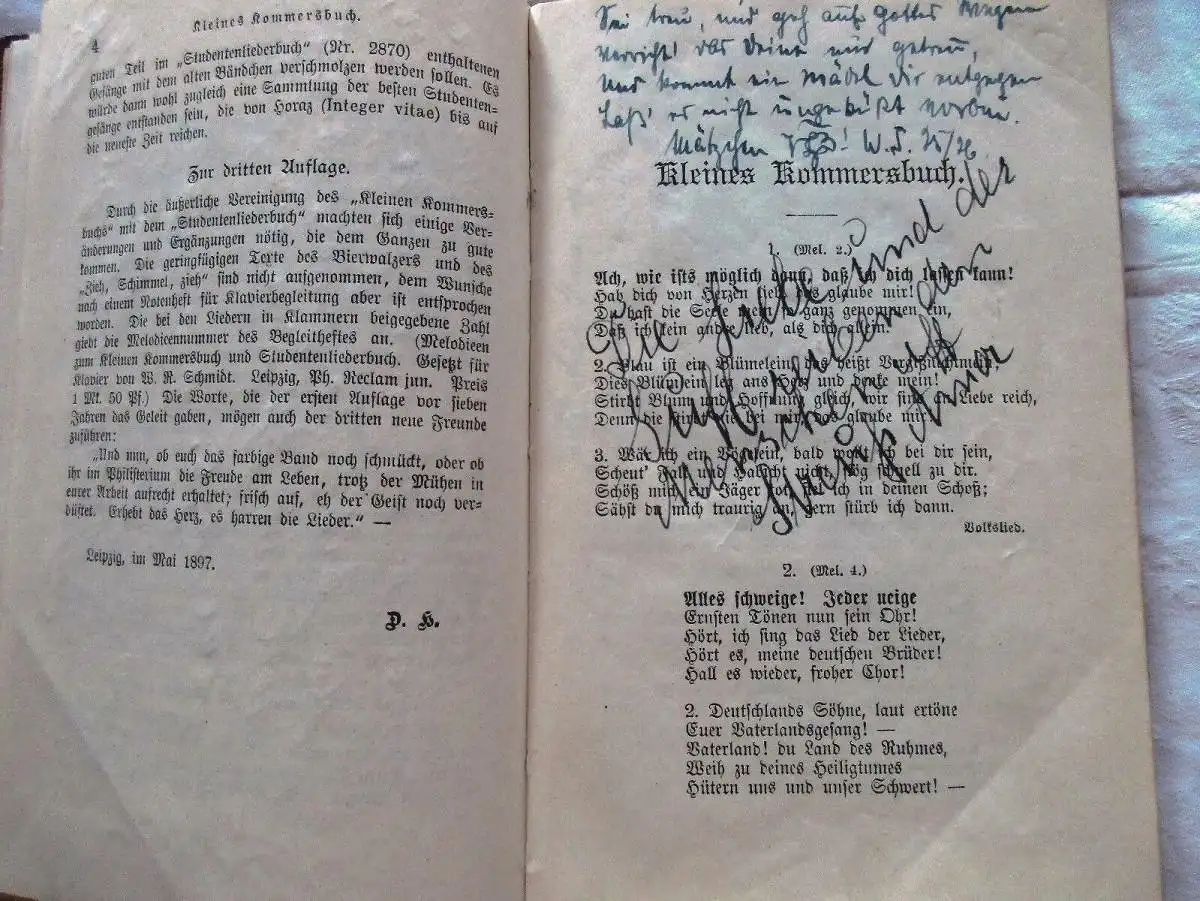 4
Kleines Kommersbuch.
guten Teil im „Studentenliederbuch“ (Nr. 2870) enthaltenen
Gesänge mit dem alten Bändchen verschmolzen werden sollen. Es
würde dann wohl zugleich eine Sammlung der besten Studenten-
gesänge entstanden sein, die von Horaz (Integer vitae) bis auf
die neueste Zeit reichen.
Zur dritten Auflage.
Durch die äußerliche Vereinigung des „Kleinen Kommers-
buchs“ mit dem „Studentenliederbuch“ machten sich einige Ver-
änderungen und Ergänzungen nötig, die dem Ganzen zu gute
kommen. Die geringfügigen Texte des Bierwalzers und des
„Zieh, Schimmel, zieh“ sind nicht aufgenommen, dem Wunsche
nach einem Notenheft für Klavierbegleitung aber ist entsprochen
worden. Die bei den Liedern in Klammern beigegebene Zahl
giebt die Melodieennummer des Begleitheftes an. (Melodieen
zum Kleinen Kommersbuch und Studentenliederbuch. Gesetzt für
Klavier von W. R. Schmidt. Leipzig, Ph. Reclam jun. Preis
1 Mk. 50 Pf.) Die Worte, die der ersten Auflage vor sieben
Jahren das Geleit gaben, mögen auch der dritten neue Freunde
zuführen:
„Und nun, ob euch das farbige Band noch schmückt, oder ob
ihr im Philisterium die Freude am Leben, trotz der Mühen in
eurer Arbeit aufrecht erhaltet; frisch auf, eh der Geist noch ver-
düstet. Erhebt das Herz, es harren die Lieder.“ —
Leipzig, im Mai 1897.
D. H.
Sei treu, und geh auf Gottes Wegen
Verricht' das Deine nur getreu,
Und kommt ein Mädel Dir entgegen
Laß' es nicht ungeküßt vorbei.
W.S. 25/26
Kleines Kommersbuch.
1. (Mel. 2.)
Ach, wie ists möglich dann, daß ich dich lassen kann!
Hab dich von Herzen lieb, das glaube mir!
Du hast die Seele mein so ganz genommen ein,
Daß ich kein andre lieb, als dich allein.
2. Blau ist ein Blümelein, das heißt Vergißnichtmein;
Dies Blümlein leg ans Herz und denke mein!
Stirbt Blum und Hoffnung gleich, wir sind an Liebe reich,
Denn die stirbt nie bei mir, das glaube mir.
3. Wär ich ein Vögelein, bald wollt ich bei dir sein,
Scheut' Falk und Habicht nicht, flög schnell zu dir.
Schöß mich ein Jäger tot, fiel ich in deinen Schoß;
Sähst du mich traurig an, gern stürb ich dann.
Volkslied.
Die Liebe und der
der
2. (Mel. 4.)
Alles schweige! Jeder neige
Ernsten Tönen nun sein Ohr!
Hört, ich sing das Lied der Lieder,
Hört es, meine deutschen Brüder!
Hall es wieder, froher Chor!
2. Deutschlands Söhne, laut ertöne
Euer Vaterlandsgesang! —
Vaterland! du Land des Ruhmes,
Weih zu deines Heiligtumes
Hütern uns und unser Schwert! —